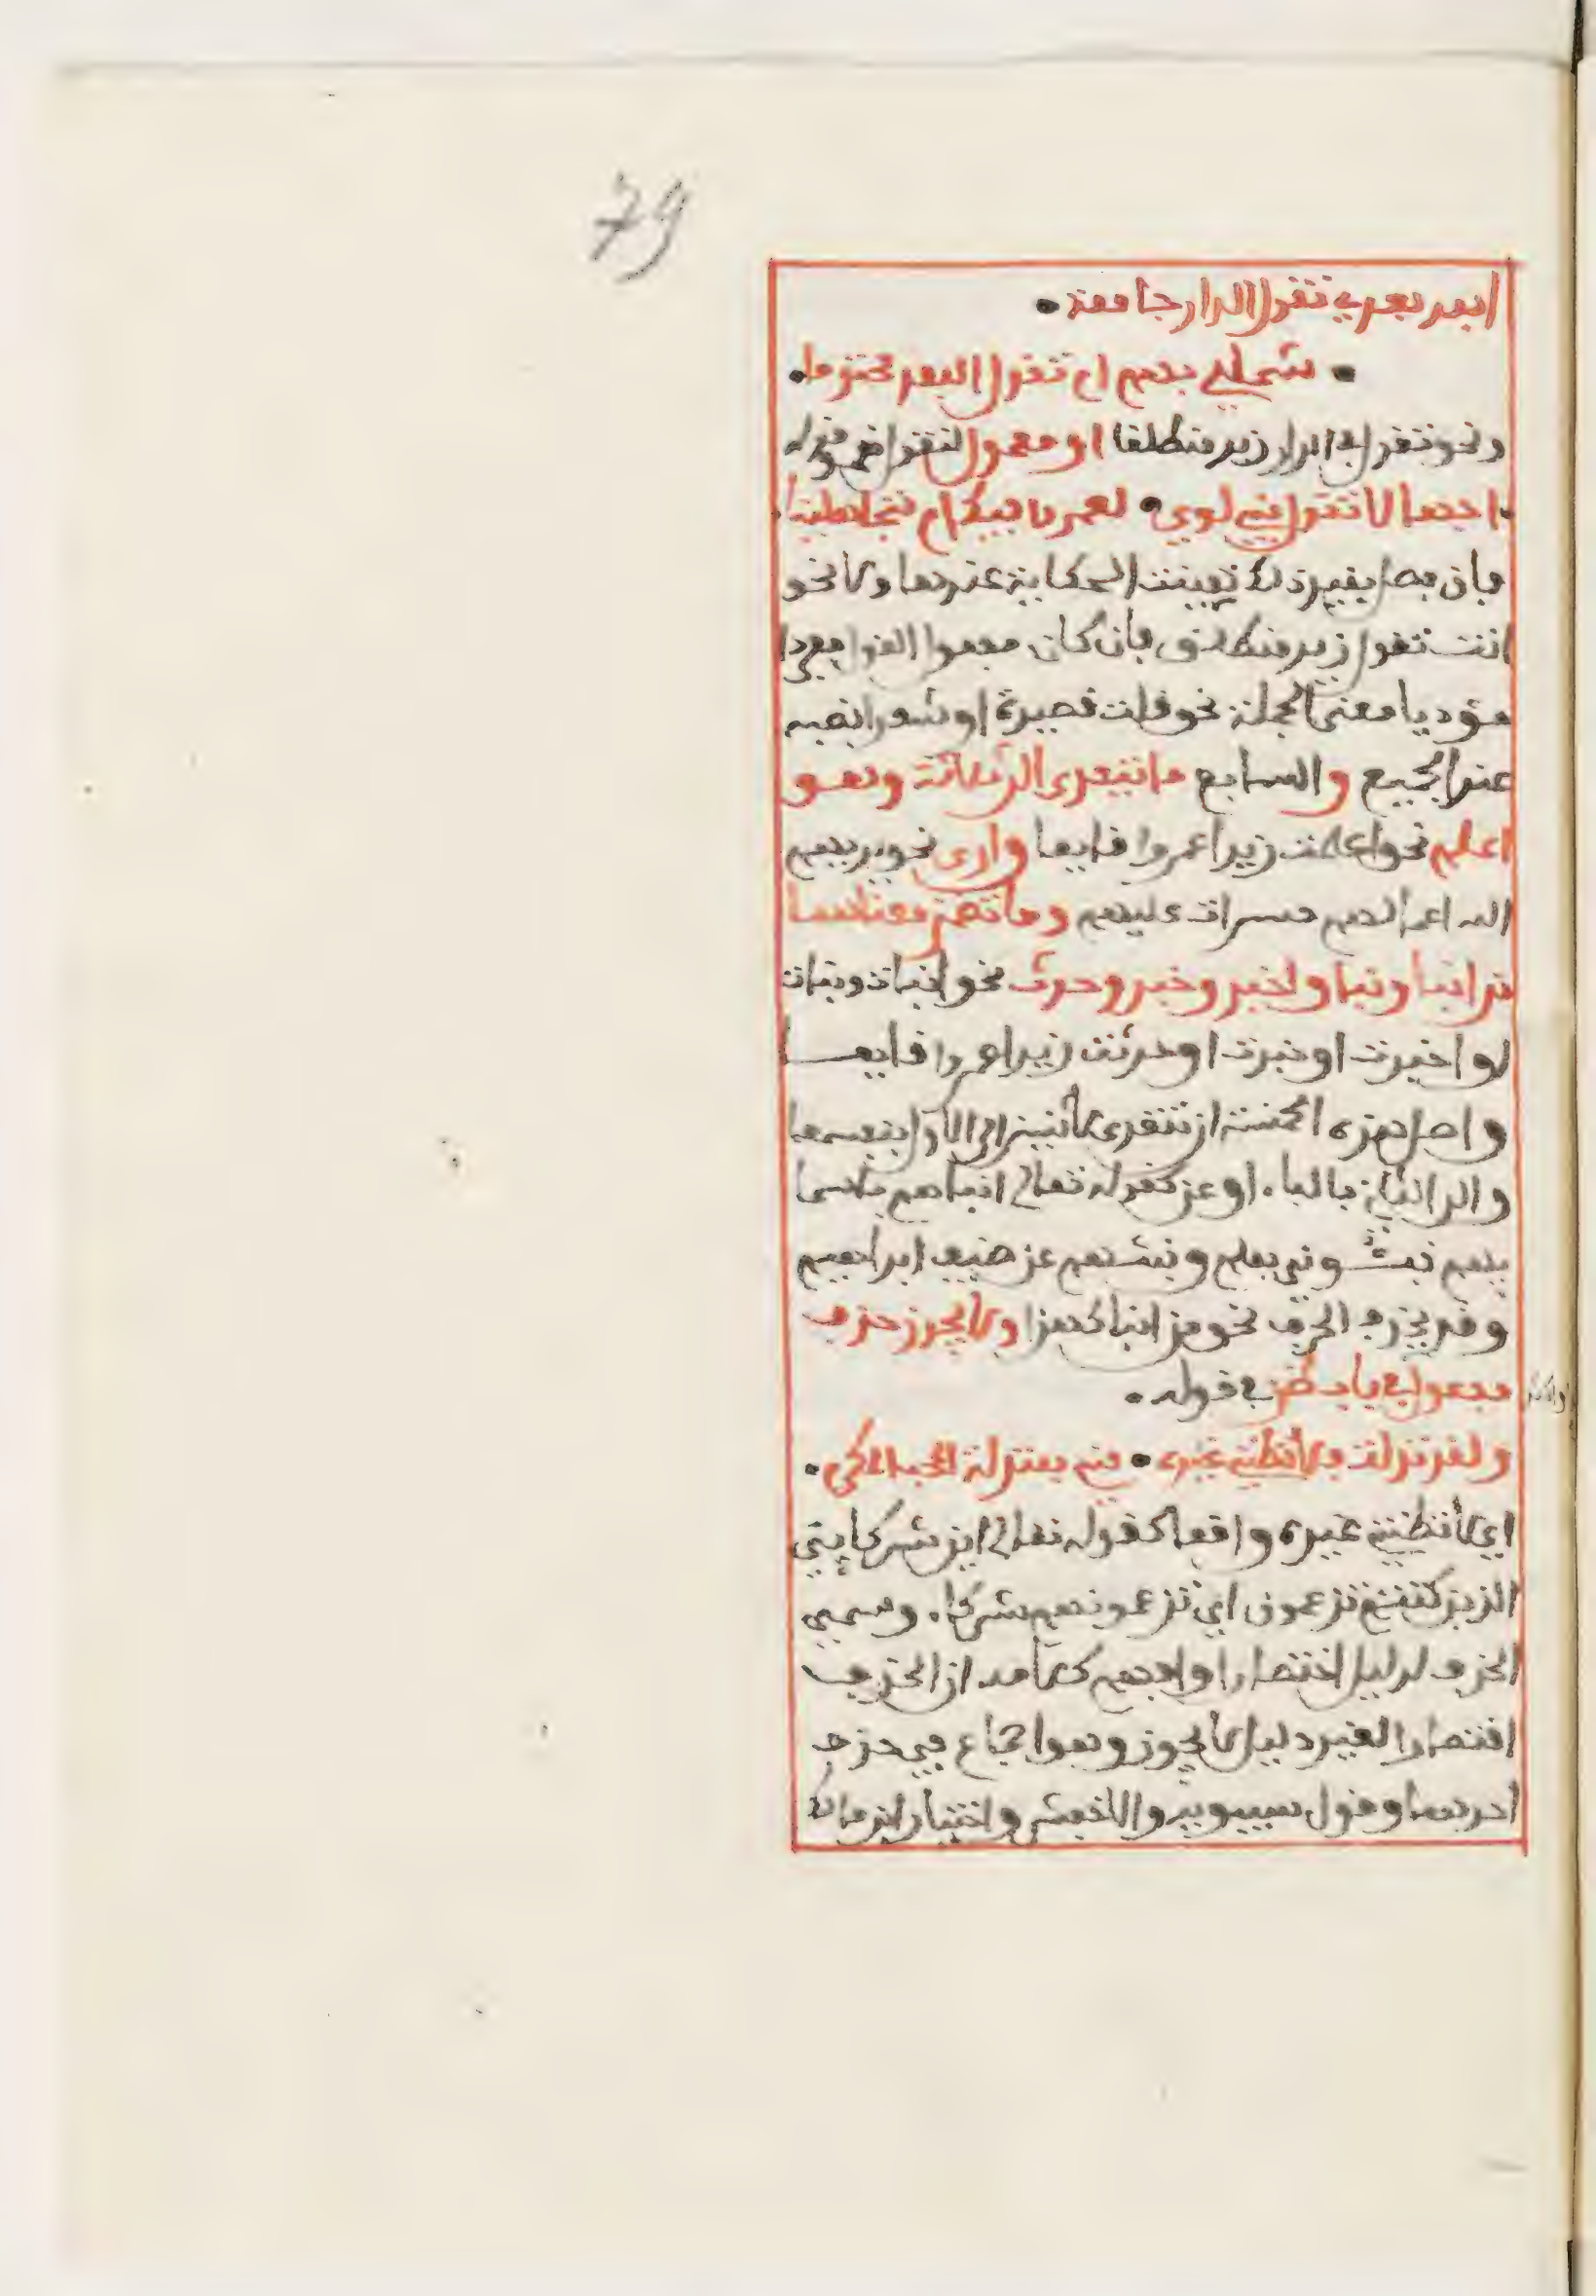 79
ابعد بعد تقول الدار جامعة •
• شملي بهم ام تقول البعد محتوما •
ونحو تقول في الدار زيد منطلقا او معمول لتقول نحو قوله
اجهالا تقول بني لوي • لعمر ابيك ام متجاهلينا
فان فصل بغير ذلك تعينت الحكاية عندها ولا نحو
انت تقول زيد منطلق فان كان مفعوا القول مفردا
مؤديا معنى الجملة نحو قلت قصيدة او شعرا نصبه
عند الجميع والسابع ما يتعدى الى ثلاثة وهو
اعلم نحو اعلمت زيدا عمروا قايما وارى نحو يريهم
الله اعمالهم حسرات عليهم وما تضمن معناهما
من انبا ونبا واخبر وخبر وحدث نحو انبات ونبات
او اخبرت او خبرت او حدثت زيدا عمروا قايما
واصل هذه الخمسة ان تتعدى لاثنين الى الاول بنفسها
والى الثاني بالباء او عن كقوله تعالى انباهم باسما
يهم نبئوني بعلم ونبئهم عن ضيف ابراهيم
وقد يحذف الحرف نحو من انباك هذا ولا يجوز حذف
مفعول في باب ظن في قوله •
ولقد نزلت فلا تظني غيره • مني بمنزلة المحب المكرم •
اي لا تظني غيره واقعا كقوله تعالى اين شركايي
الذين كنتم تزعمون اي تزعمونهم شركاء وسمي
الحذف لدليل اختصارا وافهم كلامه ان الحذف
اقتصارا لغير دليل لا يجوز وهو اجماع في حذف
احدهما وقول سيبويه والاخفش واختيار ابن مالك